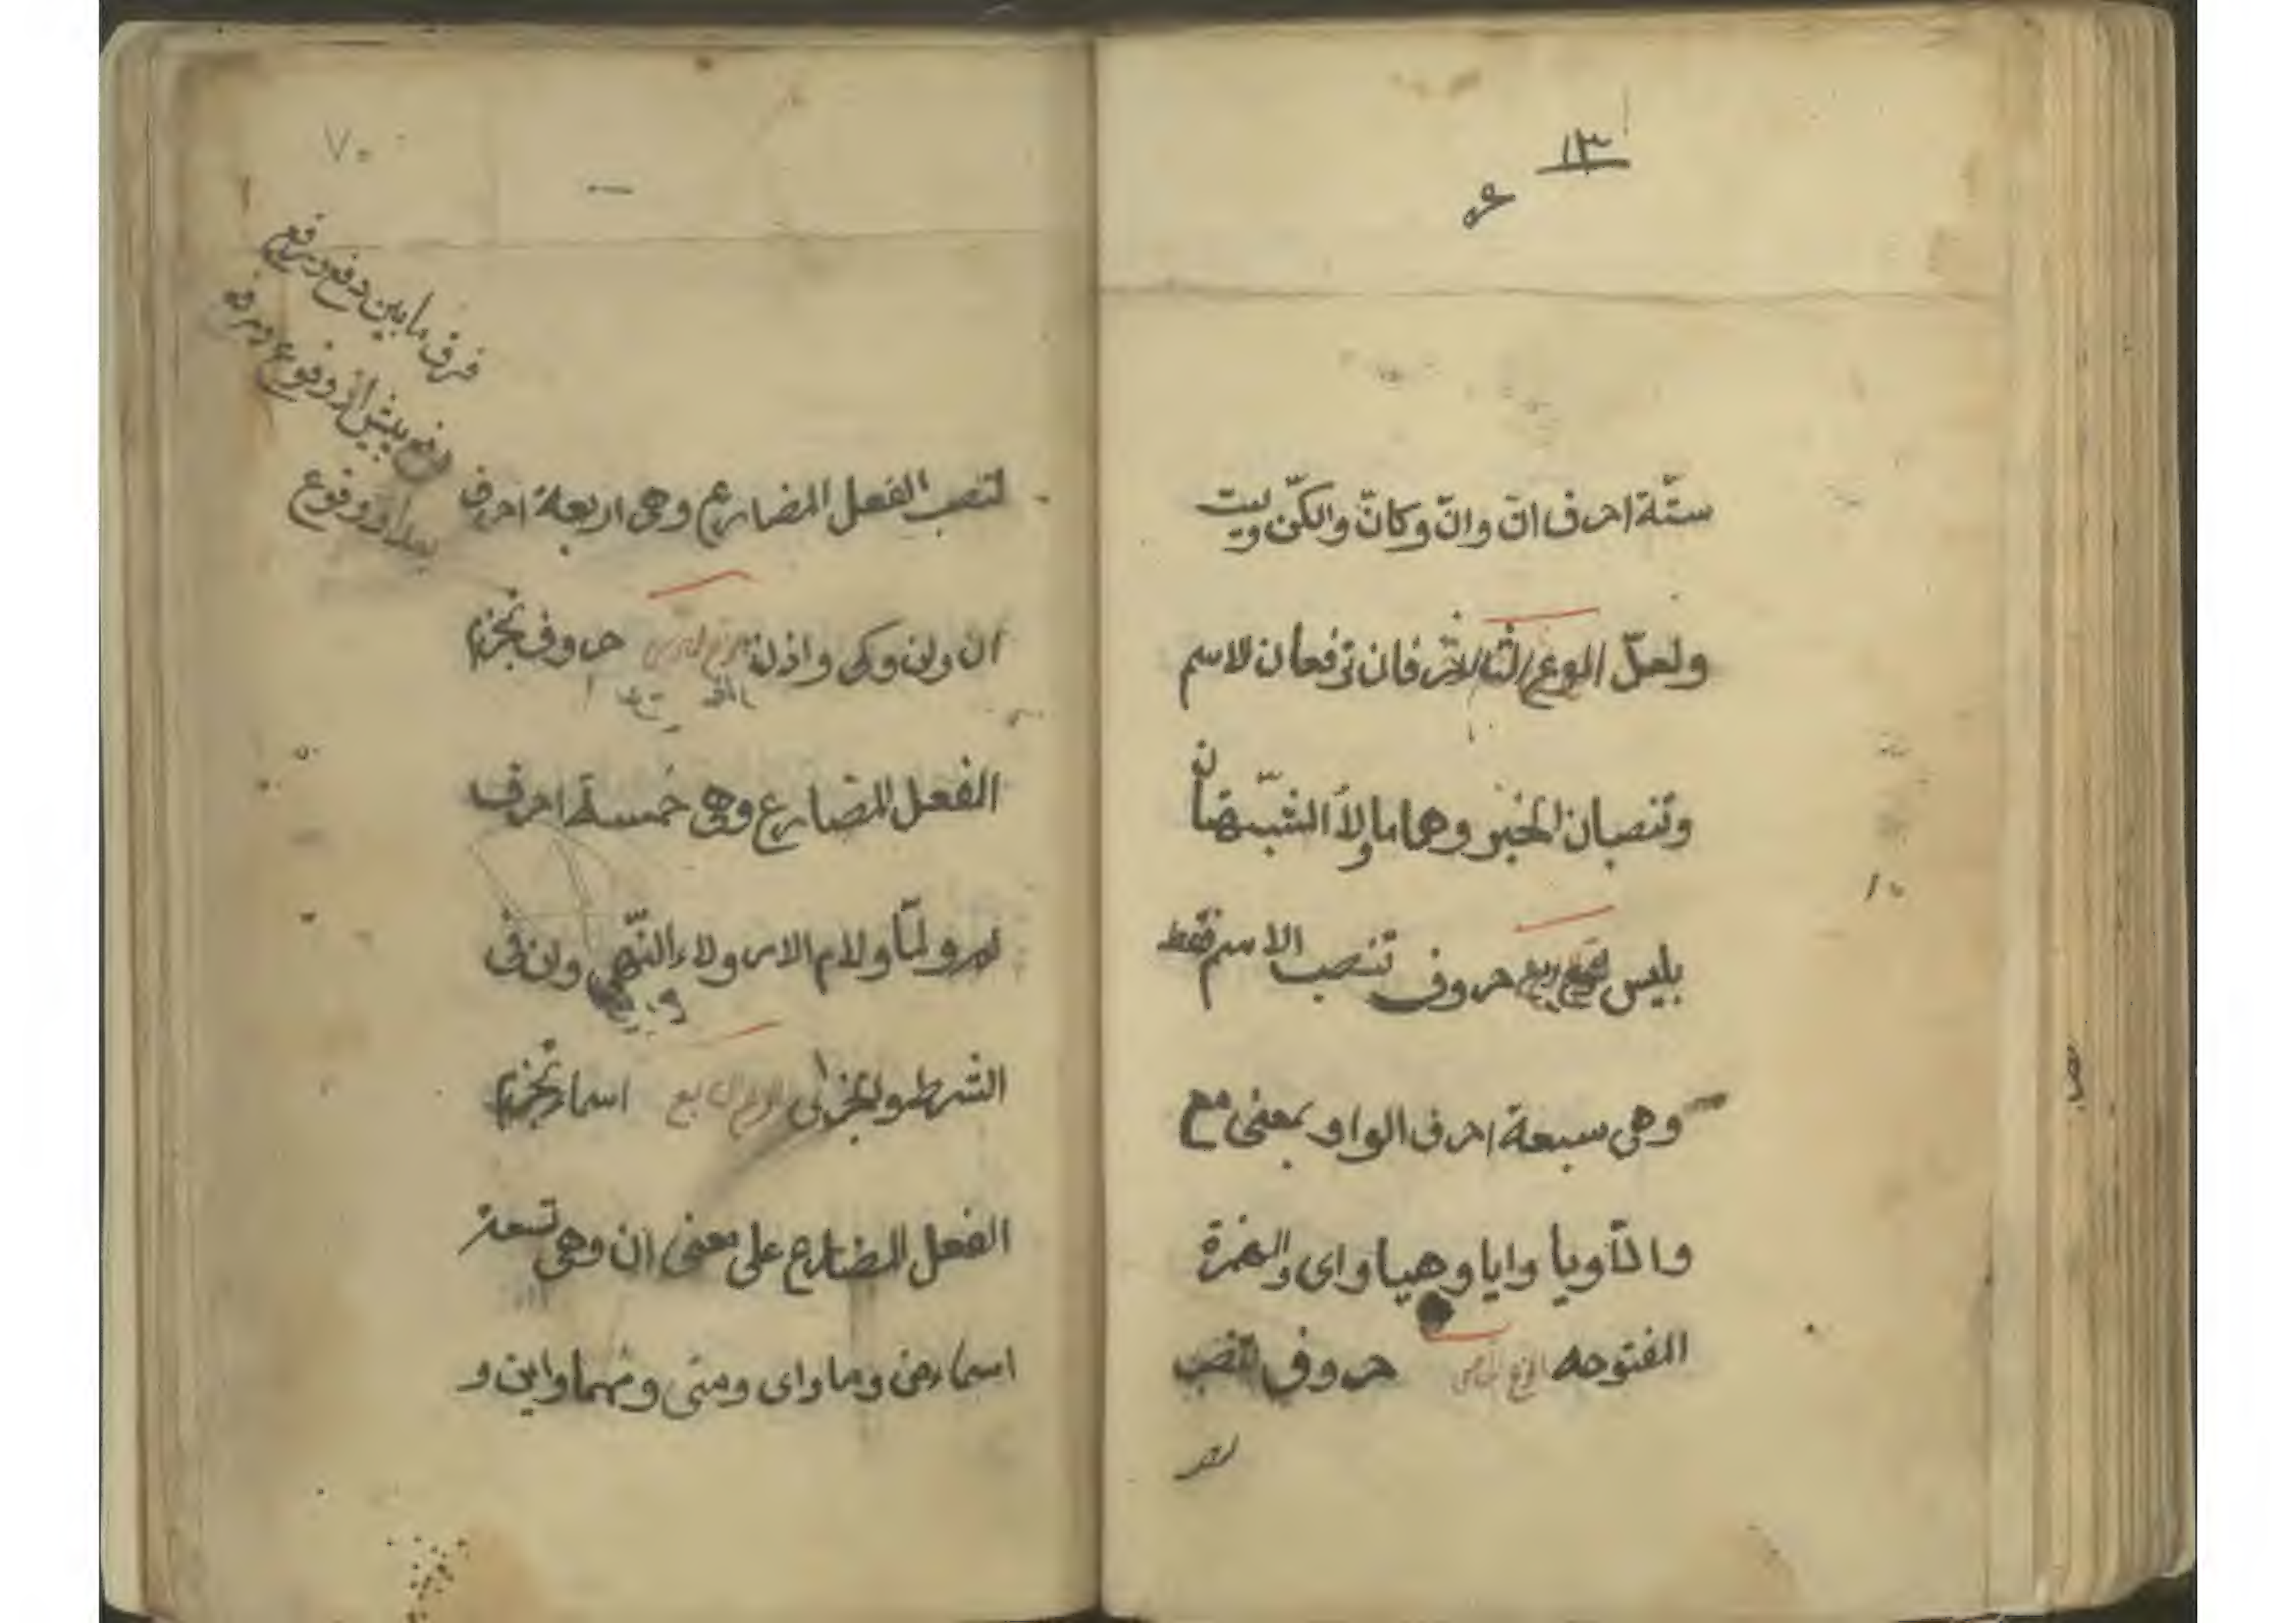 ١٣
ستّة احرف انّ وانّ وكانّ ولكنّ وليت
ولعلّ النوع الثالث حرفان ترفعان الاسم
وتنصبان الخبر وهما ما ولا الشبّهتان
بليس النوع الرابع حروف تنصب الاسم فقط
وهى سبعة احرف الواو بمعنى مع
والّا ويا وايا وهيا واى والهمزة
المفتوحه النوع الخامس حروف تنصب
٧٠
فرق مابين دفع ورفع
دفع پيش از وقوع ورفع
بعد از وقوع
لتنصب الفعل المضارع وهى اربعة احرف
ان ولن وكى واذن النوع السادس حروف تجزم
الفعل المضارع وهى خمسة احرف
لم ولمّا ولام الامر ولاء النّهى وان فى
الشرط والجزاى النوع السابع اسماء تجزم
الفعل المضارع على معنى ان وهى تسعة
اسماء من وما واى ومتى ومهما واين و